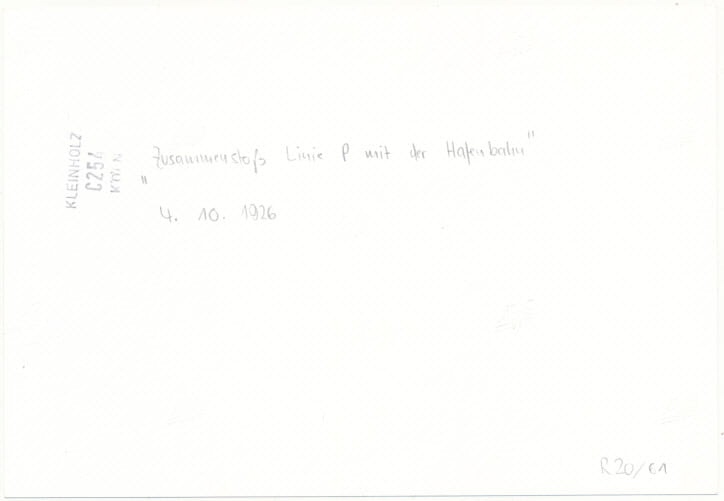 KLEINHOLZ
C254
KÖLN
„Zusammenstoß Linie P mit der Hafenbahn"
4. 10. 1926
R20/61